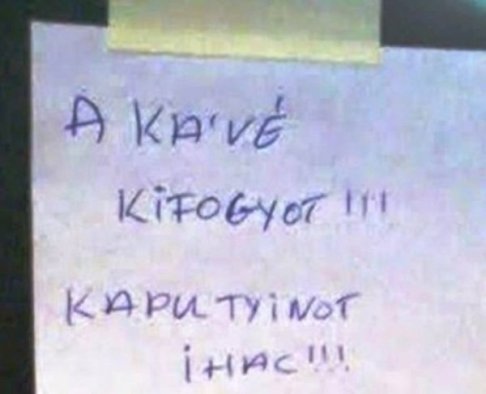 A KA'VÉ
KiFOGYOT !!!
KAPUTYiNOT
iHAC!!!